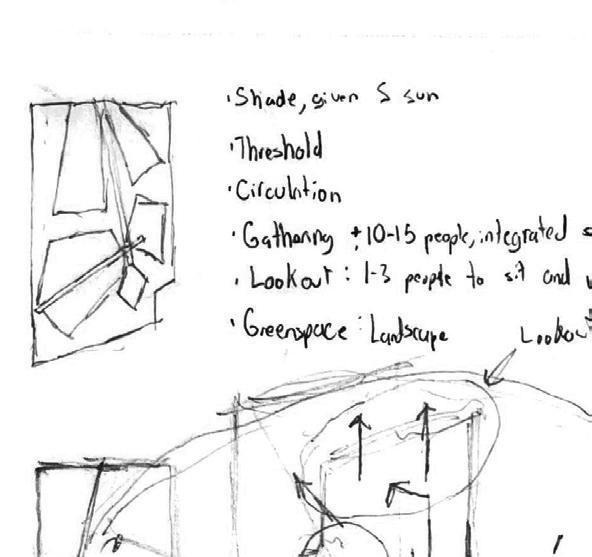 · Shade, given S sun
· Threshold
· Circulation
· Gathering : 10-15 people, integrated
· Lookout : 1-3 people to sit and
· Greenspace : Landscape
Lookout